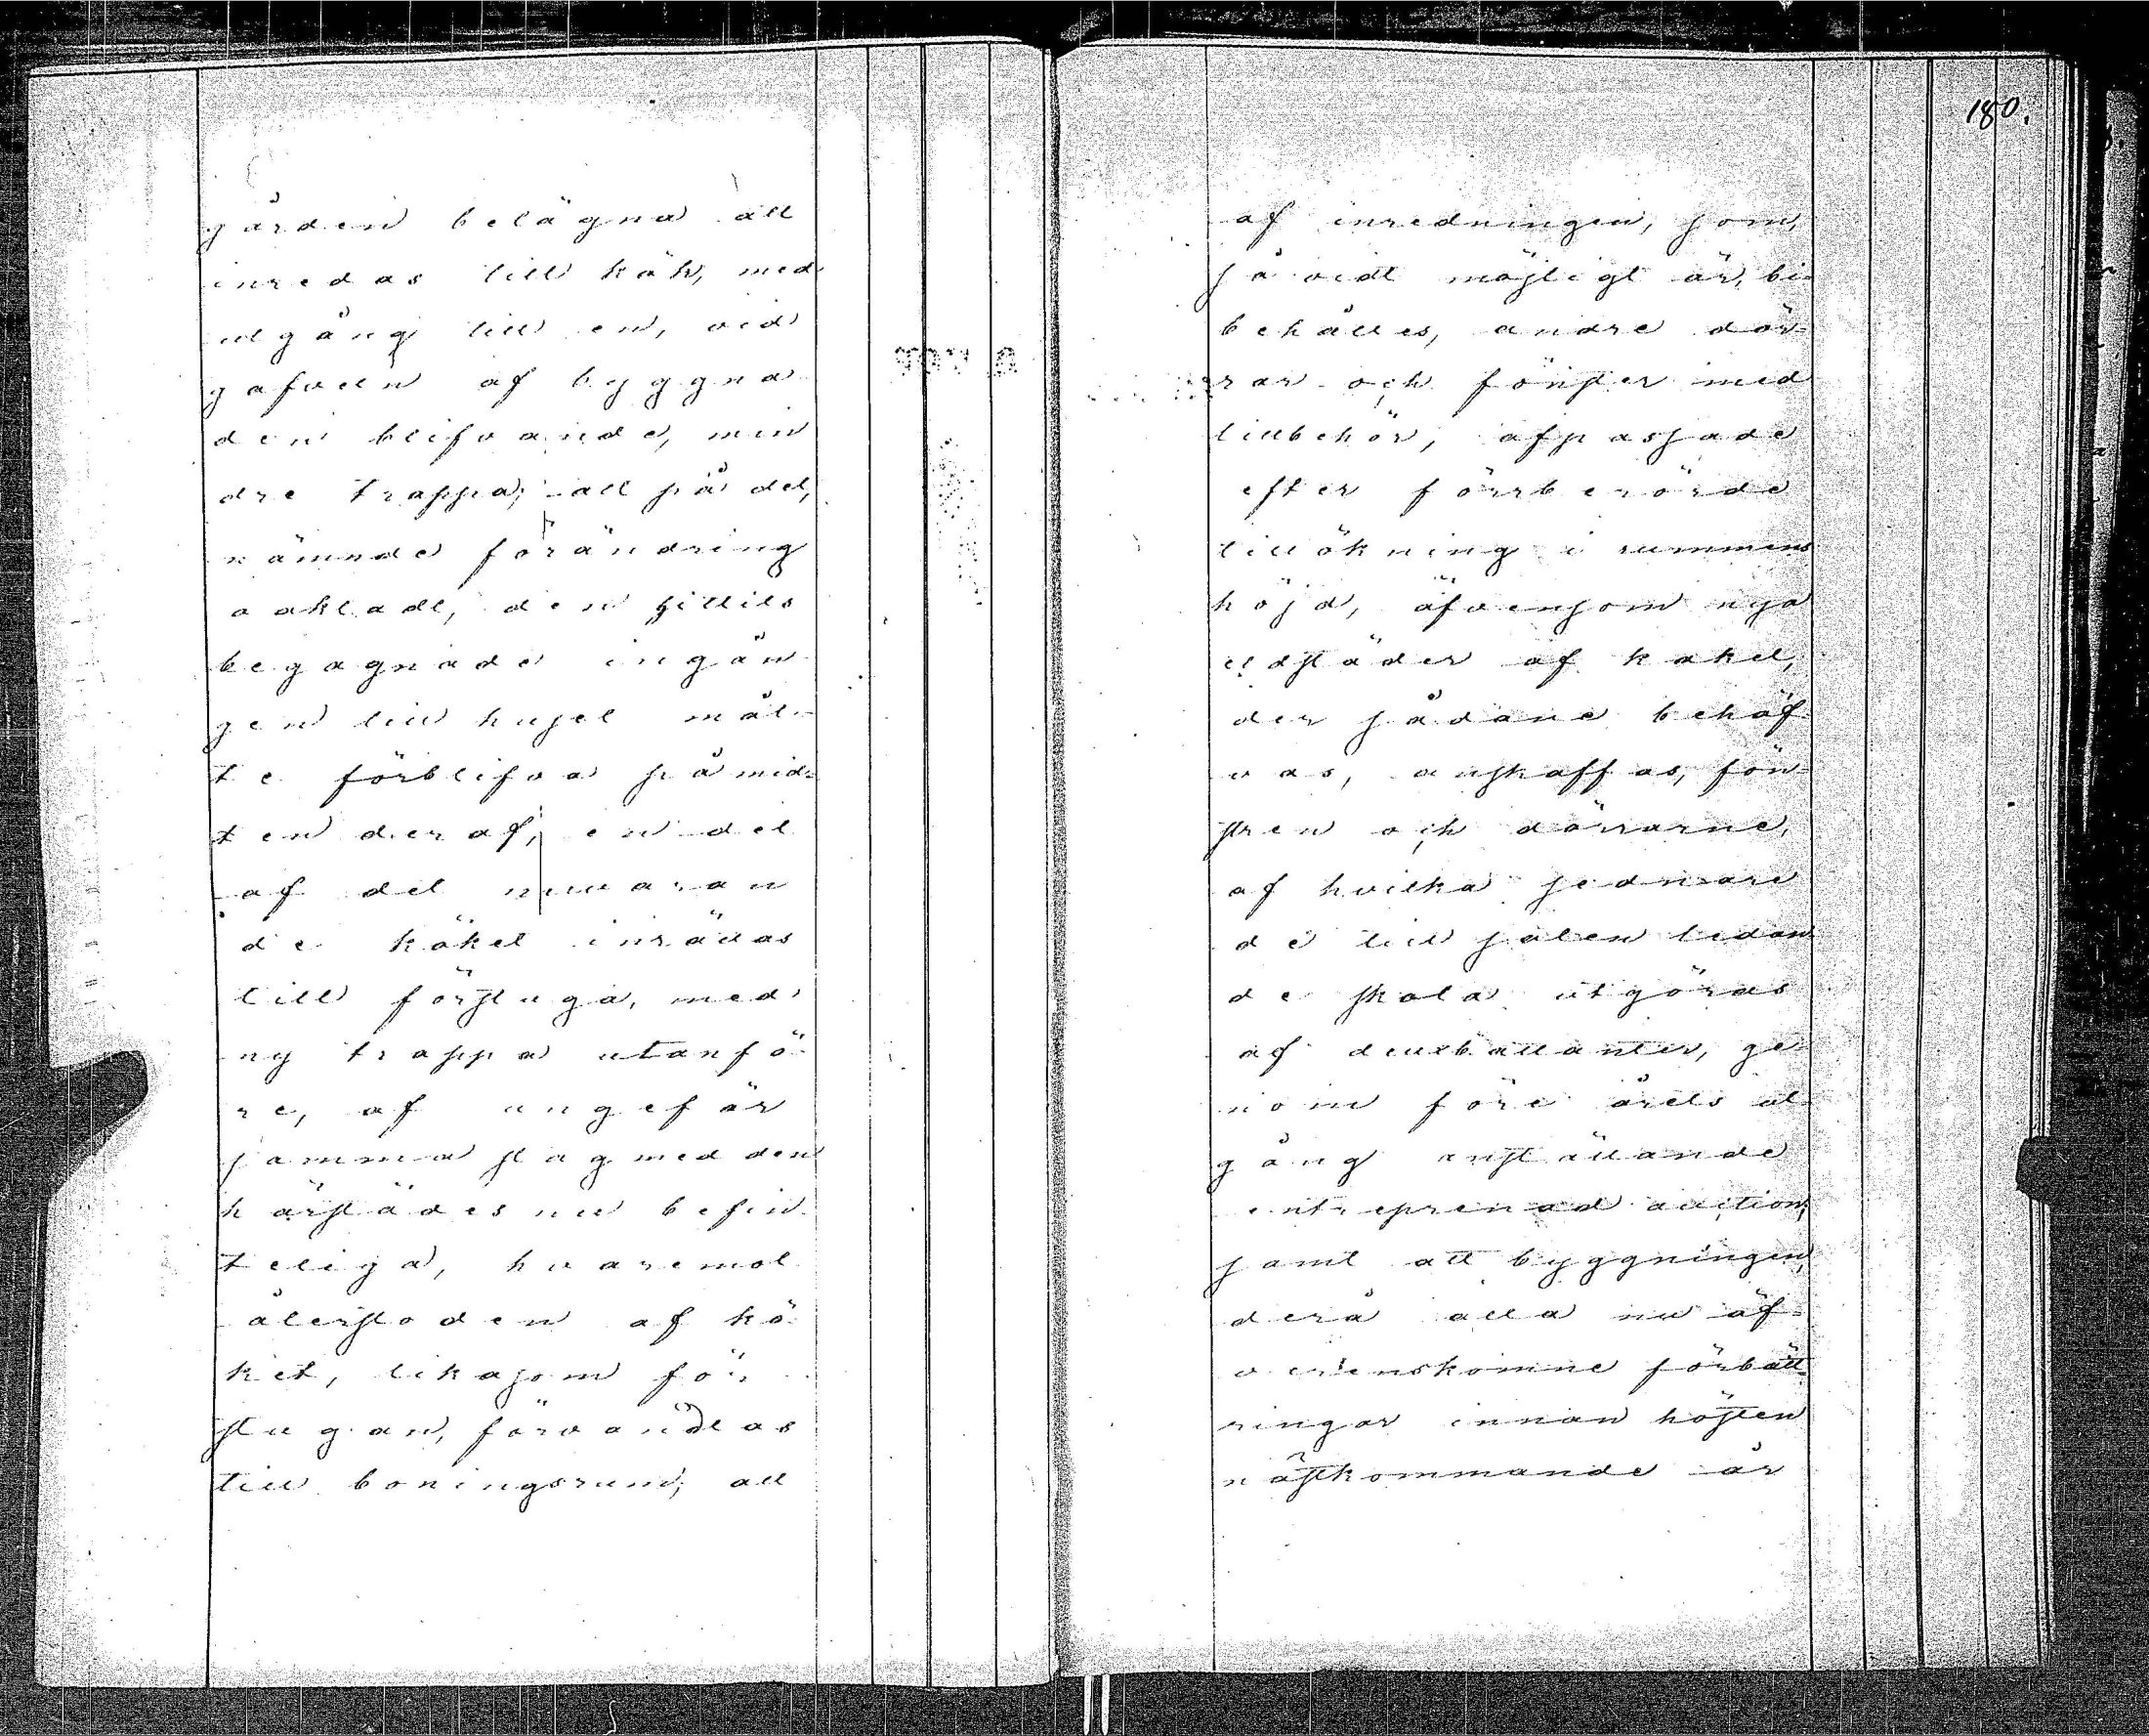 gården belägna att
inredas till kök, med
utgång till en, vid
gafveln af byggna
den blifvande, min
dre trappa; att på det,
nämnde förändring
oaktadt, den hittils
begagnade ingån
gen till huset måt-
te förblifva på mid-
ten deraf; en del
af det nuvaran
de köket inrättas
till förstuga, med
ny trappa utanfö
re, af ungefär
samma slag med den
härstädes nu befin
teliga, hvaremot
återstoden af kö
ket, likasom för
stugan, förvandlas
till boningsrum; att
180.
af inredningen, som,
så vidt möjligt är, bi-
behålles, andre dör-
rar och fönster med
tillbehör, afpassade
efter förrberörde
tillökning i rummens
höjd, äfvensom nya
eldstäder af kakel,
der sådane behöf
vas, anskaffas, fön-
stren och dörrarne,
af hvilka sednare
de till salen ledan
de skola utgöras
af dubbattanter, ge
nom före årets ut
gång anställande
entreprenad auction,
samt att byggningen,
derå alla nu öf-
verenskomne förbätt-
ringar innan hösten
nästkommande år